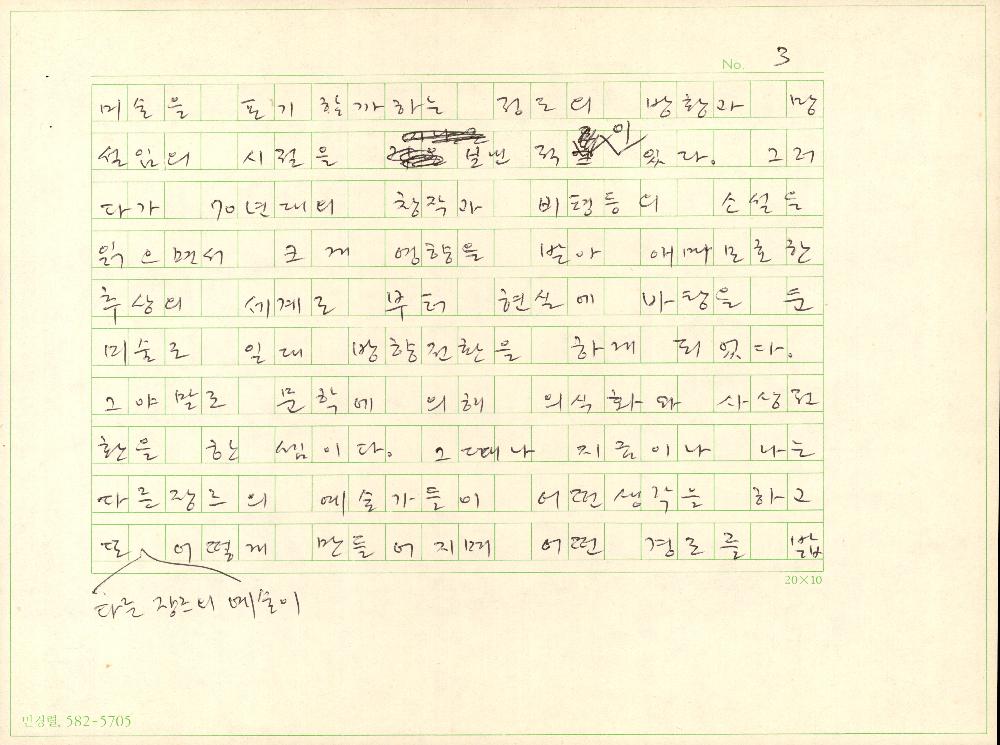 No. 3
미술을 포기할까하는 정도의 방황과 망
설임의 시절을 보낸 적이 있다. 그러
다가 70년대의 창작과 비평등의 소설을
읽으면서 크게 영향을 받아 애매모호한
추상의 세계로 부터 현실에 바탕을 둔
미술로 일대 방향전환을 하게 되었다.
그야말로 문학에 의해 의식화와 사상전
환을 한 셈이다. 그때나 지금이나 나는
다른장르의 예술가들이 어떤생각을 하고
또 어떻게 만들어지며 어떤 경로를 밟
다른 장르의 예술이
20×10
민정렬, 582-5705